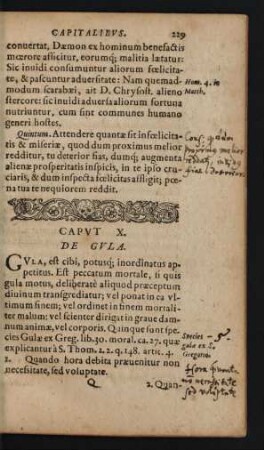 CAPITALIBVS. 229
conuertat, Dæmon ex hominum benefactis
mœrore afficitur, eorumq; malitia lætatur:
Sic inuidi consumuntur aliorum fœlicita-
te, & pascuntur aduersitate: Nam quemad-
modum scarabæi, ait D. Chrysost. alieno
stercore: sic inuidi aduersa aliorum fortuna
nutriuntur, cum sint communes humano
generi hostes.
Hom. 4. in
Matth.
Quintum. Attendere quantæ sit infœlicita-
tis & miseriæ, quod dum proximus melior
redditur, tu deterior fias, dumq; augmenta
alienæ prosperitatis inspicis, in te ipso cru-
ciaris, & dum inspecta fœlicitas affligit; pœ-
na tua te nequiorem reddit.
CAPVT X.
DE GVLA.
GVLA, est cibi, potusq; inordinatus ap-
petitus. Est peccatum mortale, si quis
gula motus, deliberatè aliquod præceptum
diuinum transgrediatur; vel ponat in ea vl-
timum finem; vel ordinet in finem mortali-
ter malum: vel scienter dirigat in graue dam-
num animæ, vel corporis. Quinque sunt spe-
cies Gulæ ex Greg. lib. 30. moral. ca. 27. quæ
explicantur à S. Thom. 2. 2. q. 148. artic. 4.
Species
gulæ ex S.
Gregorio.
1. Quando hora debita præuenitur non
necessitate, sed voluptate.
Q 2. Quan-